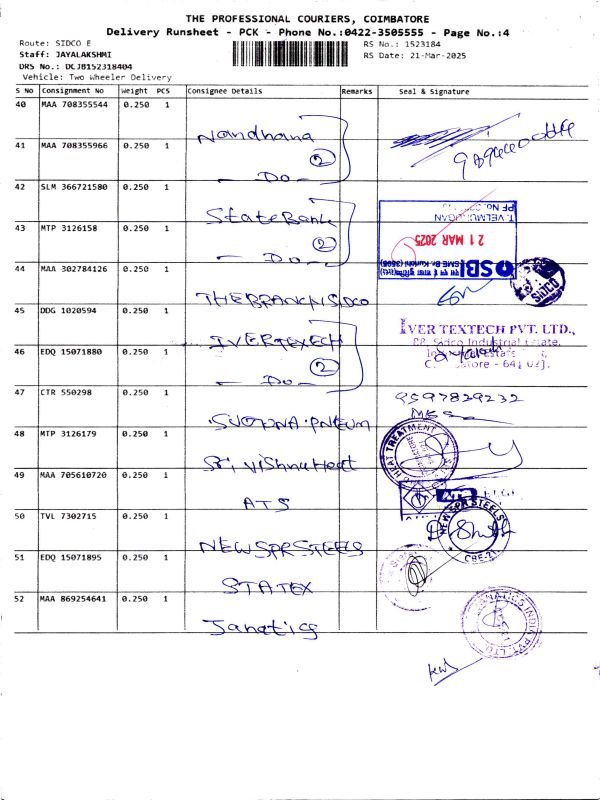 THE PROFESSIONAL COURIERS, COIMBATORE
Delivery Runsheet - PCK - Phone No.:0422-3505555 - Page No.:4
Route: SIDCO E
RS No.: 1523184
Staff: JAYALAKSHMI
RS Date: 21-Mar-2025
DRS No.: DCJB152318404
Vehicle: Two Wheeler Delivery
S No Consignment No Weight PCS Consignee Details Remarks Seal & Signature
40 MAA 708355544 0.250 1 Nandhana
41 MAA 708355966 0.250 1 - Do - 2
42 SLM 366721580 0.250 1 State Bank
T. VELMURUGAN
43 MTP 3126158 0.250 1 - Do - 2
21 MAR 2025
SBI
44 MAA 302784126 0.250 1 THE BRANCH SIDCO
SIDCO
45 DDG 1020594 0.250 1 IVERTEXECH
IVER TEXTECH PVT. LTD.,
Sidco Industrial Estate,
46 EDQ 15071880 0.250 1 - Do - 2
47 CTR 550298 0.250 1 SUGUNA PNEUM
9597829232
48 MTP 3126179 0.250 1 Sri Vishnu Heat
HEAT TREATMENT
49 MAA 705610720 0.250 1 ATS
ELGI
50 TVL 7302715 0.250 1 NEW SPR STEELS
NEW SPR STEELS
CBE-21
51 EDQ 15071895 0.250 1 STATEX
52 MAA 869254641 0.250 1 Janatics
JANATICS INDIA PVT. LTD.